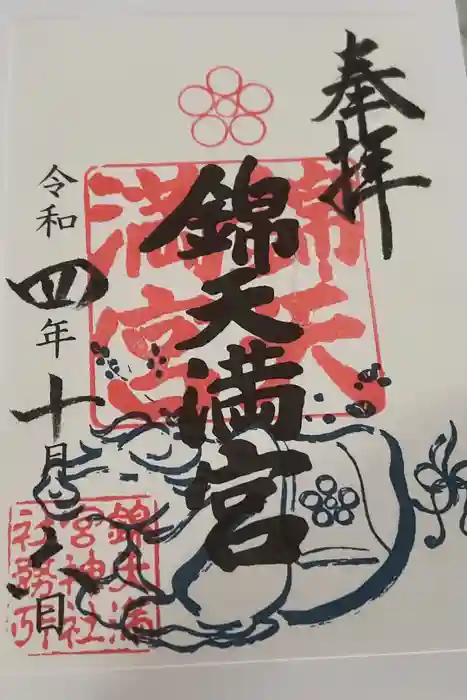 奉拝
錦天満宮
令和四年十月六日
錦天
満宮
錦天満
宮神社
社務所